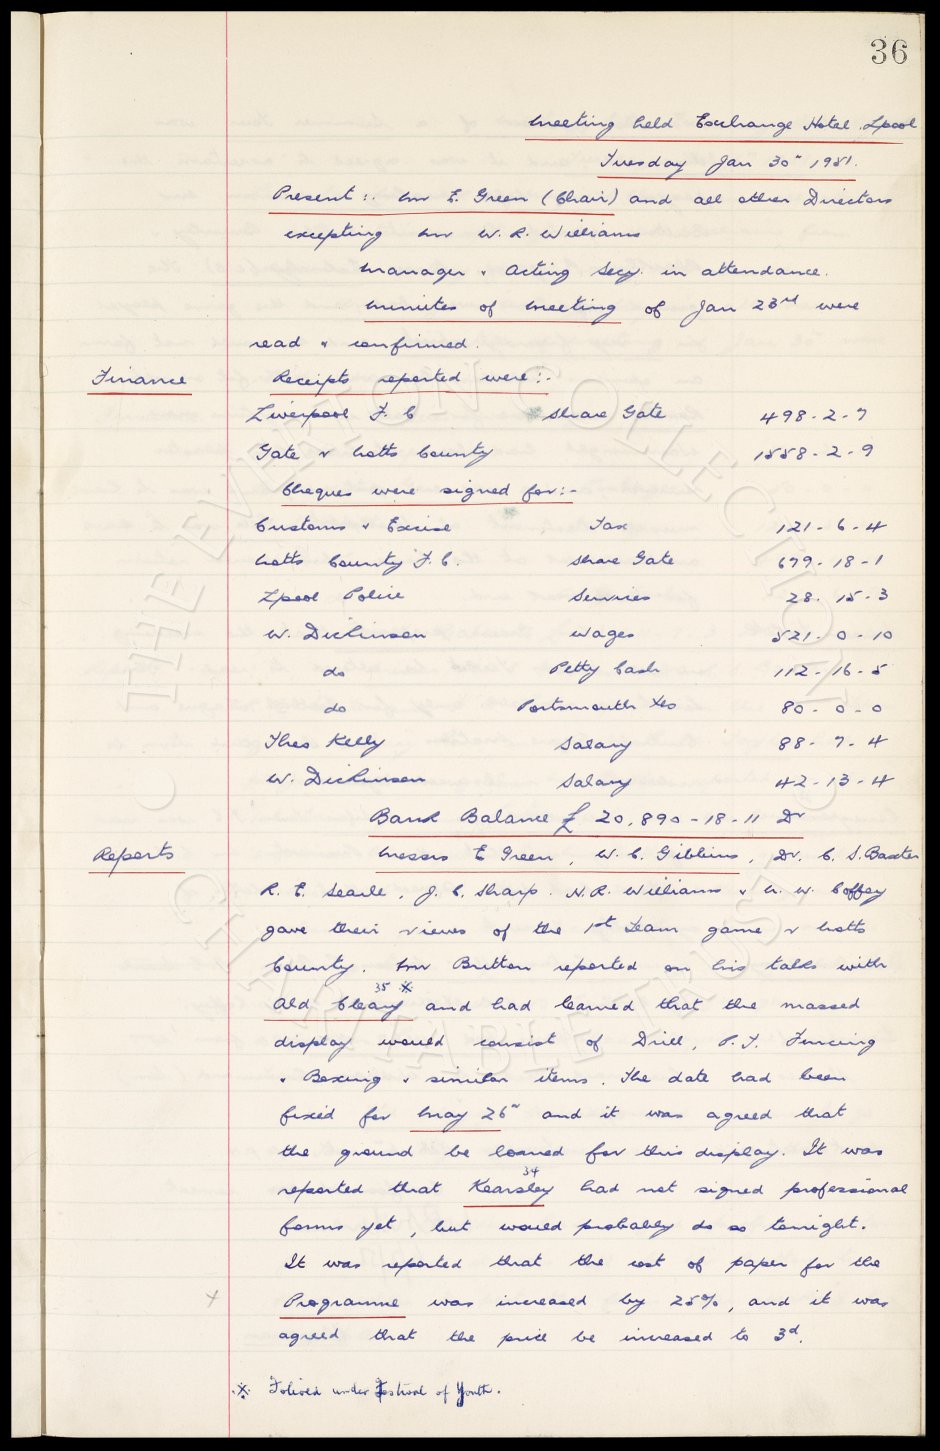 36
Meeting held Exchange Hotel L'pool
Tuesday Jan 30" 1951.
Present :. Mr E. Green (Chair) and all other Directors
excepting Mr W. R. Williams
Manager & Acting Secy. in attendance.
Minutes of Meeting of Jan 23rd were
read & confirmed.
Finance Receipts reported were :-
Liverpool F. C Share Gate 498 - 2 - 7
Gate v Notts County 1558 - 2 - 9
Cheques were signed for :-
Customs & Excise Tax 121 - 6 - 4
Notts County F. C. Share Gate 679 - 18 - 1
Lpool Police Services 28 - 15 - 3
W. Dickinson Wages 521 - 0 - 10
do Petty Cash 112 - 16 - 5
do Portsmouth Xes 80 - 0 - 0
Theo Kelly Salary 88 - 7 - 4
W. Dickinson Salary 42 - 13 - 4
Bank Balance £ 20,890 - 18 - 11 Dr
Reports Messrs E Green, W. C. Gibbins, Dr. C. S. Baxter
R. E. Searle, J. C. Sharp. N. R. Williams & W. Coffey
gave their views of the 1st Team game v Notts
County. Mr Britton reported on his talks with
Ald Cleary 35 ※ and had learned that the massed
display would consist of Drill, P. T. Fencing
& Boxing & similar items. The date had been
fixed for May 26" and it was agreed that
the ground be loaned for this display. It was
reported that Kearsley 34 had not signed professional
forms yet, but would probably do so tonight.
It was reported that the cost of paper for the
Programme was increased by 25%, and it was
agreed that the price be increased to 3d.
※ Folioed under Festival of Youth.
THE EVERTON COLLECTION
CHARITABLE TRUST